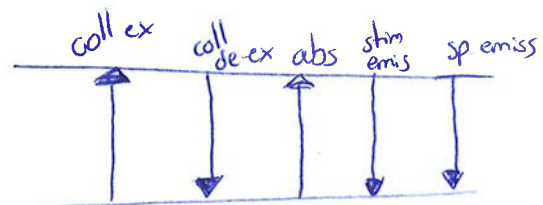 coll ex
coll
de-ex
abs
stim
emis
sp emiss